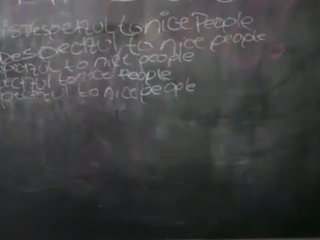 isrespectful to nice People
Respectful to nice people
pectful to nice people
ectful to nice People
pectful to nice people